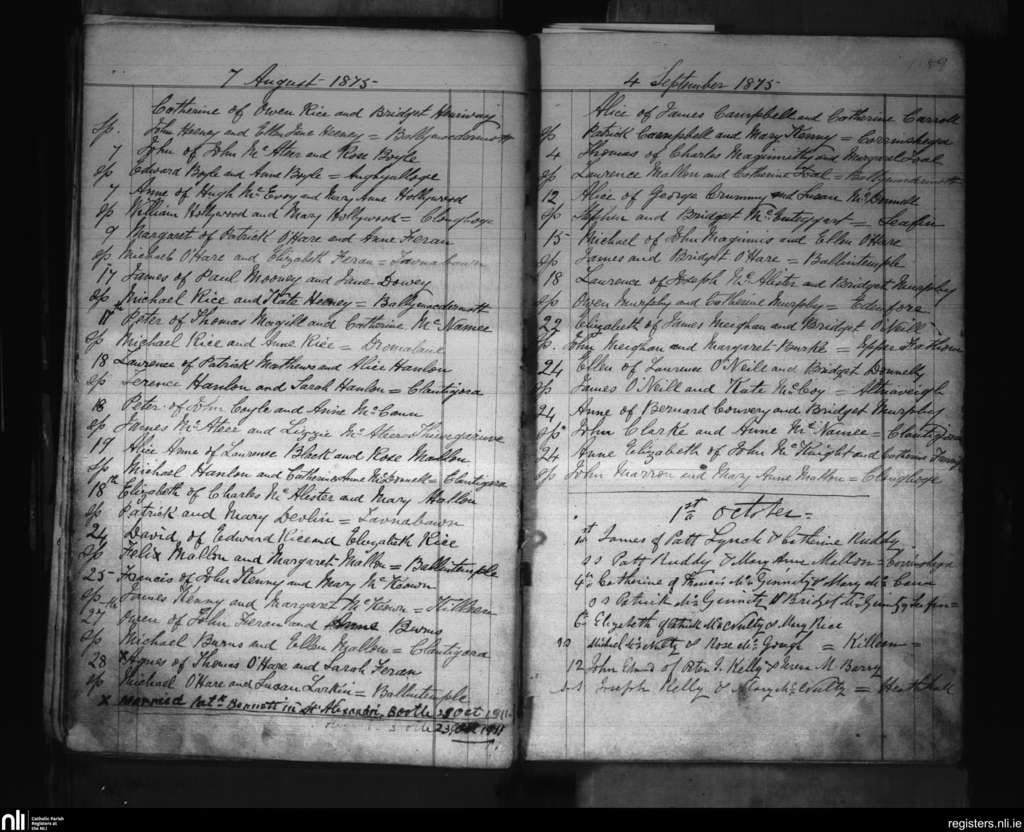 7 August 1875
Catherine of Owen Rice and Bridget
Sp. John Heeney and Ellen Jane Heeney = Ballymacdermott
7 John of John Mc Ateer and Rose Boyle
Sp Edward Boyle and Anne Boyle = Aughyalloge
7 Anne of Hugh Mc Evoy and Mary Anne Hollywood
Sp William Hollywood and Mary Hollywood = Cloughoge
9 Margaret of Patrick O'Hare and Anne Feran
Sp Michael O'Hare and Elizabeth Feran = Tavnabawn
17 James of Paul Mooney and Jane Dowey
Sp Michael Rice and Kate Heeney = Ballymacdermott
Peter of Thomas Magill and Catherine Mc Namee
Sp Michael Rice and Anne Rice = Dromalane
18 Laurence of Patrick Mathews and Alice Hanlon
Sp Terence Hanlon and Sarah Hanlon = Clantigora
18 Peter of John Coyle and Anne Mc Cann
Sp James Mc Ateer and Lizzie Mc
19 Alice Anne of Laurence Black and Rose Mallon
Sp Michael Hanlon and Catherine Anne McDonnell = Clantigora
18th Elizabeth of Charles Mc Alister and Mary Hallon
Sp Patrick and Mary Devlin = Tavnabawn
24 David of Edward Rice and Elizabeth Rice
Sp Felix Mallon and Margaret Mallon = Ballintemple
25 Francis of John Kenny and Mary Mc Keown
Sp James Kenny and Margaret Mc Keown = Killean
27th Owen of John Feran and Anne Burns
Sp Michael Burns and Ellen Mallon = Clantigora
28 x Agnes of Thomas O'Hare and Sarah Feran
Sp Michael O'Hare and Susan Larkin = Ballintemple
x Married Patk Bennett in St Alexander, Bootle 28 Oct 1911
23 Oct 1911
4 September 1875
Alice of James Campbell and Catherine Carroll
Sp Patrick Campbell and Mary Kenny = Corrinshega
4 Thomas of Charles Maginnitty and Margaret Toal
Sp Laurence Mallon and Catherine Toal = Ballymacdermott
12 Alice of George Crummy and Susan Mc Donnell
Sp Stephen and Bridget Mc Entyggart = Seaffin
15 Michael of John Maginnis and Ellen O'Hare
Sp James and Bridget O'Hare = Ballintemple
18 Laurence of Joseph Mc Alister and Bridget Murphy
Sp Owen Murphy and Catherine Murphy = Edenfore
22 Elizabeth of James Meighan and Bridget O'Neill
Sp. John Meighan and Margaret Burke = Upper
24 Ellen of Laurence O'Neill and Bridget Donnelly
Sp James O'Neill and Kate McCoy = Altnaveigh
24 Anne of Bernard Convery and Bridget Murphy
Sp John Clarke and Anne Mc Namee = Clantigora
24 Anne Elizabeth of John McKnight and Catherine
Sp John Marron and Mary Anne Mallon = Cloughoge
1st October =
1st James of Patt Lynch & Catherine Ruddy
ss Patt Ruddy & Mary Anne Mallon = Corinshega
4th Catherine of Francis McGennity & Mary Mc Cann
ss Patrick McGennity & Bridget McGennity
6 Elizabeth of Patrick McNulty & Mary Rice
ss Michael McNulty & Rose Mc Gough = Killean =
12 John Edwd of Peter J. Kelly & Teresa M Berry
ss Joseph Kelly & Mary McNulty = Heathhall
nli
Catholic Parish
Registers at
the NLI
registers.nli.ie